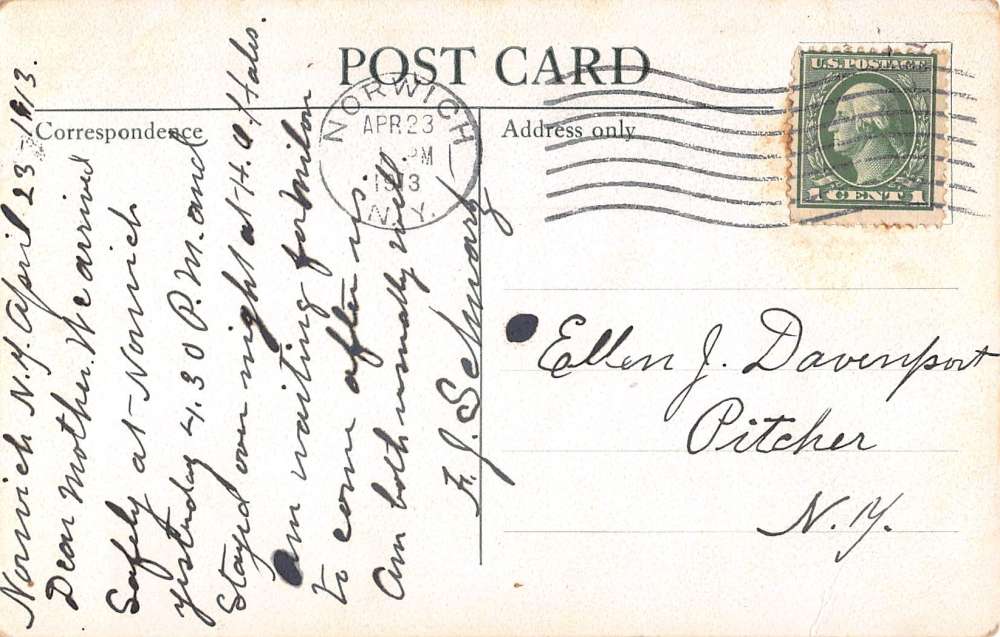 POST CARD
Correspondence
Address only
Norwich N.Y. April 23 - 1913.
Dear Mother. We arrived
Safely at Norwich
yesterday 4.30 P.M. and
Stayed over night at H.O. Hales.
Am waiting for Milon
to come after us.
Am both usually well.
F. J. Schwarz
NORWICH
APR 23
PM
1913
N.Y.
U.S. POSTAGE
1 CENT 1
Ellen J. Davenport
Pitcher
N.Y.